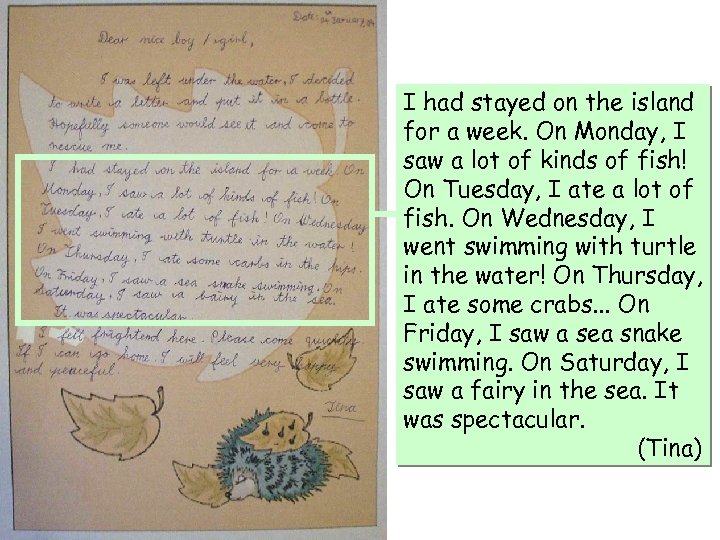 Date: 24 January, 04
Dear nice boy / girl,
I was left under the water, I decided
to write a letter and put it in a bottle.
Hopefully someone would see it and come to
rescue me.
I had stayed on the island for a week. On
Monday, I saw a lot of kinds of fish! On
Tuesday, I ate a lot of fish! On Wednesday
I went swimming with turtle in the water!
On Thursday, I ate some carbs in the
On Friday, I saw a sea snake swimming. On
Saturday, I saw a bairy in the sea.
It was spectacular.
I felt frightend here. Please come quickly.
If I can go home, I will feel very happy
and peaceful.
Tina
I had stayed on the island
for a week. On Monday, I
saw a lot of kinds of fish!
On Tuesday, I ate a lot of
fish. On Wednesday, I
went swimming with turtle
in the water! On Thursday,
I ate some crabs... On
Friday, I saw a sea snake
swimming. On Saturday, I
saw a fairy in the sea. It
was spectacular.
(Tina)